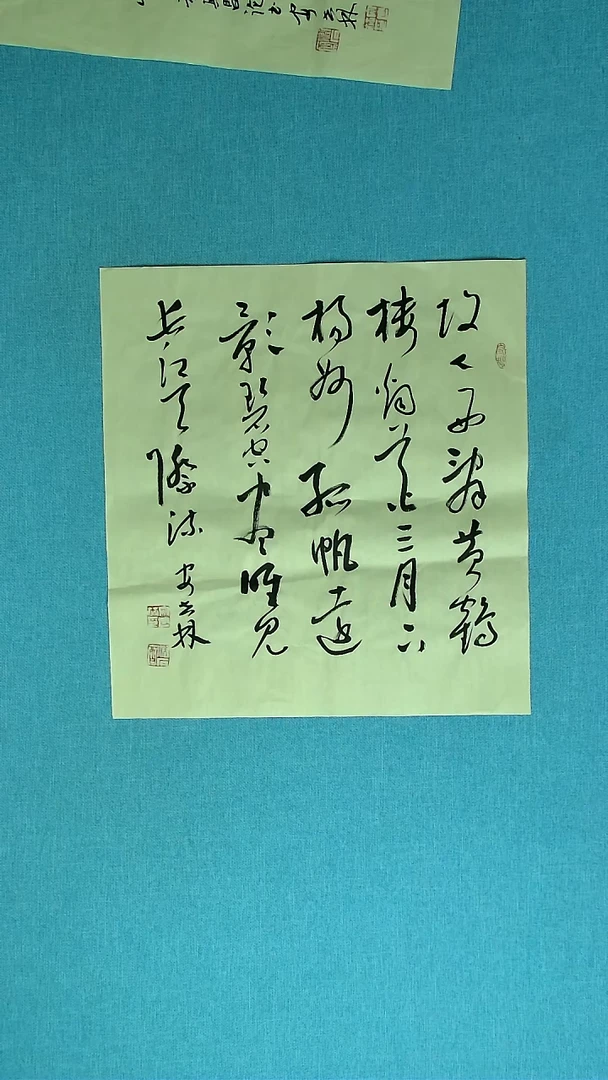 故人西辞黄鹤
楼烟花三月下
扬州孤帆远
影碧空尽唯见
长江天际流